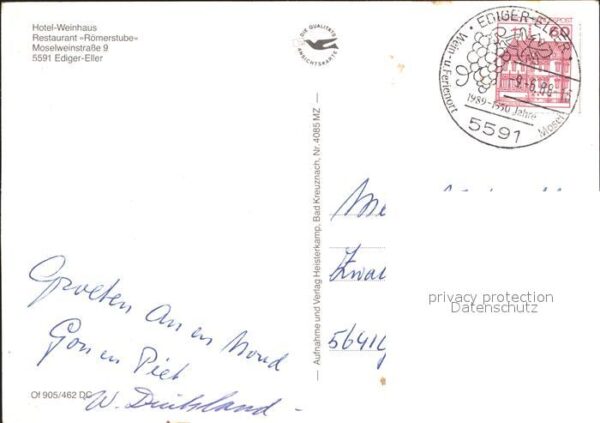 Hotel-Weinhaus
Restaurant »Römerstube«
Moselweinstraße 9
5591 Ediger-Eller
DIE QUALITÄTS
ANSICHTSKARTE
EDIGER-ELLER
Wein- u. Ferienort
60
-9.-6.88-
1989-1350 Jahre
5591
Mosel
Aufnahme und Verlag Heisterkamp, Bad Kreuznach, Nr. 4085 MZ
privacy protection
Datenschutz
Groeten An en
Gon en Piet
W. Duitsland -
Of 905/462 DC